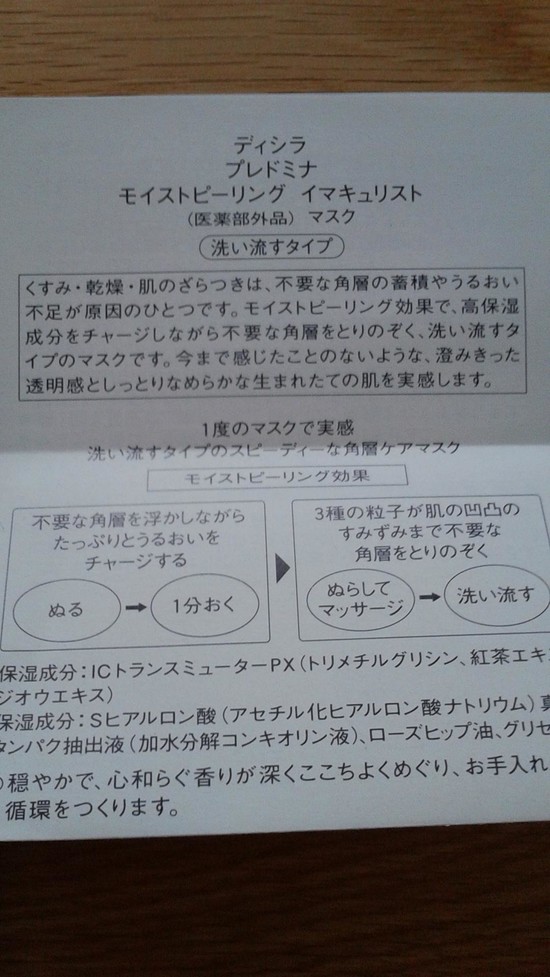 ディシラ
プレドミナ
モイストピーリング イマキュリスト
(医薬部外品) マスク
洗い流すタイプ
くすみ・乾燥・肌のざらつきは、不要な角層の蓄積やうるおい
不足が原因のひとつです。モイストピーリング効果で、高保湿
成分をチャージしながら不要な角層をとりのぞく、洗い流すタ
イプのマスクです。今まで感じたことのないような、澄みきった
透明感としっとりなめらかな生まれたての肌を実感します。
1度のマスクで実感
洗い流すタイプのスピーディーな角層ケアマスク
モイストピーリング効果
不要な角層を浮かしながら
たっぷりとうるおいを
チャージする
ぬる
➡
1分おく
3種の粒子が肌の凹凸の
すみずみまで不要な
角層をとりのぞく
ぬらして
マッサージ
➡
洗い流す
保湿成分:ICトランスミューターPX(トリメチルグリシン、紅茶エキ
ジオウエキス)
保湿成分:Sヒアルロン酸(アセチル化ヒアルロン酸ナトリウム)真
タンパク抽出液(加水分解コンキオリン液)、ローズヒップ油、グリセ
穏やかで、心和らぐ香りが深くここちよくめぐり、お手入れ
循環をつくります。